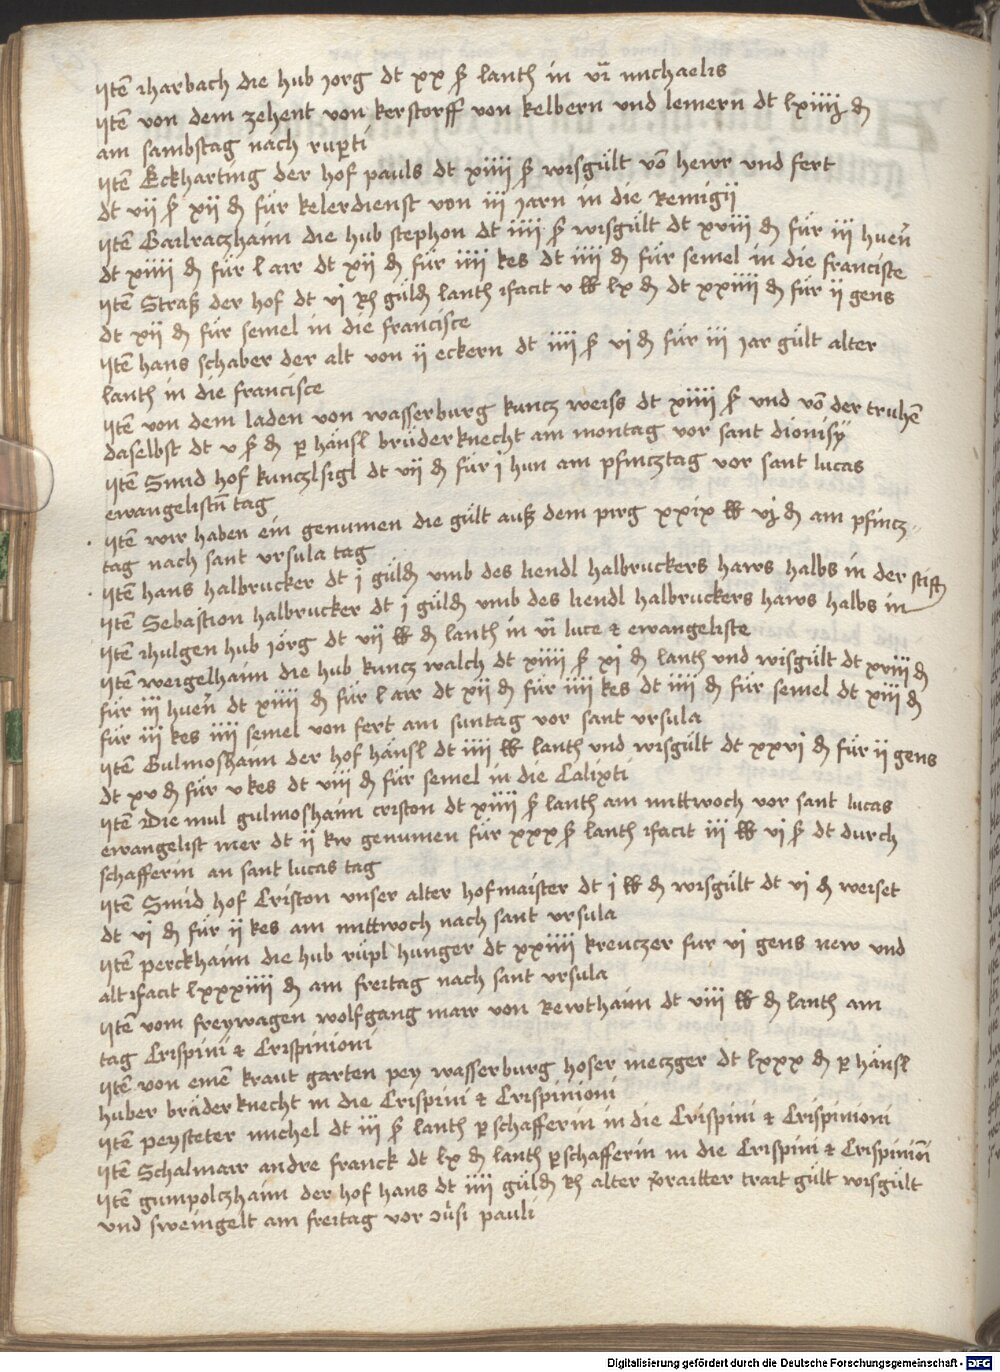 Jtē Marbach die hub Jorg dt xx ß lantħ in vīᵃ michaelis
Jtē von dem zehent von kerstorff von kelbern und lemern dt lxiiij ₰
am sambstag nach ruꝑti
Jtē Eckharting der hof pauls dt xiiii ß wisgült vō hewr vnd fert
dt vii ß xii ₰ für kelerdienst von iii Jarn in die Remigii
Jtē Gailraczhaim die hub stephon dt iiii ß wisgült dt xviii ₰ für iii huen̄
dt xiiii ₰ für l air dt xii ₰ für iiii kes dt iiii ₰ für semel in die francisce
Jtē Straß der hof dt vi Rħ güld̄ lantħ ꝛfacit v ℔ lx ₰ dt xxiiii ₰ für ii gens
dt xii ₰ für semel in die francisce
Jtē hans schaber der alt von ii eckern dt iiii ß vi ₰ für iii Jar gült alter
lantħ in die francisce
Jtē von dem laden von wasserburg kuncz weiss dt xiiii ß vnd vō der truhē
daselbst dt v ß ₰ ꝑ hänsl brüderknecht am montag vor sant dionisÿ
Jtē Smid hof kunczlsigl dt vii ₰ für i hun am pfincztag vor sant lucas
ewangelistn̄ tag
Jtē wir haben ein genumen die gült auß dem pirg xxix ℔ vi ₰ am pfincz-
tag nach sant vrsula tag
Jtē hans halbrucker dt i güld̄ vmb des liendl halbruckers haws halbs in der stift
Jtē Sebastion halbrucker dt i güld̄ vmb des liendl halbruckers haws halbs in
Jtē Mulgen hub Jörg dt vii ℔ ₰ lantħ in vīᵃ luce & ewangeliste
Jtē weigelhaim die hub kuncz walch dt xiiii ß xi ₰ lantħ vnd wisgült dt xviii ₰
für iii huen̄ dt xiiii ₰ für l air dt xii ₰ für iiii kes dt iiii ₰ für semel dt xiii ₰
für iii kes iiii semel von fert am suntag vor sant vrsula
Jtē Gulmoshaim der hof hänsl dt iiii ℔ lantħ vnd wisgült dt xxvi ₰ für ii gens
dt xv ₰ für v kes dt viii ₰ für semel in die Calixti
Jtē Die mul gulmoshaim criston dt xiiii ß lantħ am mittwoch vor sant lucas
ewangelist mer dt ii kw genumen für xxx ß lantħ ꝛfacit iii ℔ vi ß dt durch
schafferin an sant lucas tag
Jtē Smid hof Criston vnser alter hofmaister dt i ℔ ₰ wisgült dt vi ₰ weiset
dt vi ₰ für ii kes am mittwoch nach sant vrsula
Jtē perckhaim die hub rüpl hunger dt xxiiii kreuczer fur vi gens new vnd
alt ꝛfacit lxxxiiii ₰ am freitag nach sant vrsula
Jtē vom freywagen wolfgang mair von Rewthaim dt viii ℔ ₰ lantħ am
tag Crispini & Crispinioni
Jtē von einē kraut garten pey wasserburg hoser meczger dt lxxx ₰ ꝑ hänsl
huber bräderknecht in die Crispini & Crispinioni
Jtē peysteter michel dt iii ß lantħ ꝑ schafferin in die Crispini & Crispinioni
Jtē Schalmair andre franck dt lx ₰ lantħ ꝑ schafferin in die Crispini & Crispiniōi
Jtē gumpolczhaim der hof hans dt iiii güld̄ Rħ alter traitter trait gült wisgült
vnd sweingelt am freitag vor ꝯūsi pauli
Digitalisierung gefördert durch die Deutsche Forschungsgemeinschaft - DFG